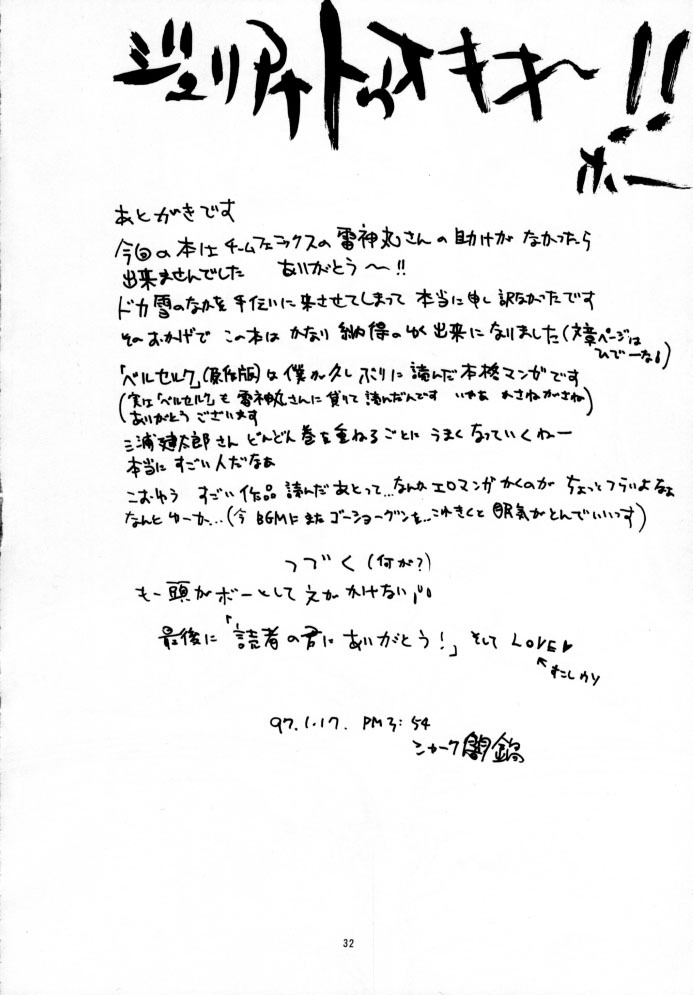 ジュリアナトゥオキキ〜!!
ホー
あとがきです
今回の本は チームフェニックスの雷神丸さんの助けが なかったら
出来ませんでした ありがとう〜!!
ドカ雪のなかを手伝いに来させてしまって 本当に申し訳なかったです
そのおかげで この本は かなり 納得のゆく出来になりました(文章ページは
ひでーなも)
「ベルセルク」(原作版)は僕が久しぶりに読んだ本格マンガです
(実は「ベルセルク」も雷神丸さんに貸りて読んだんです いやあ かさねがさね
ありがとうございます)
三浦建太郎さん どんどん巻を重ねるごとに うまくなっていくねー
本当にすごい人だなあ
こおゆう すごい作品 読んだあとって...なんかエロマンガ かくのが ちょっとつらいよなぁ
なんとゆーか...(今 BGMにまたゴーショーグンを...これきくと 眠気がとんでいいっす)
つづく(何が?)
もー頭がボーとして えが かけない
最後に「読者の君にありがとう!」そして LOVE♥
←すこしウソ
97.1.17. PM3:54
シャーク闇鍋
32